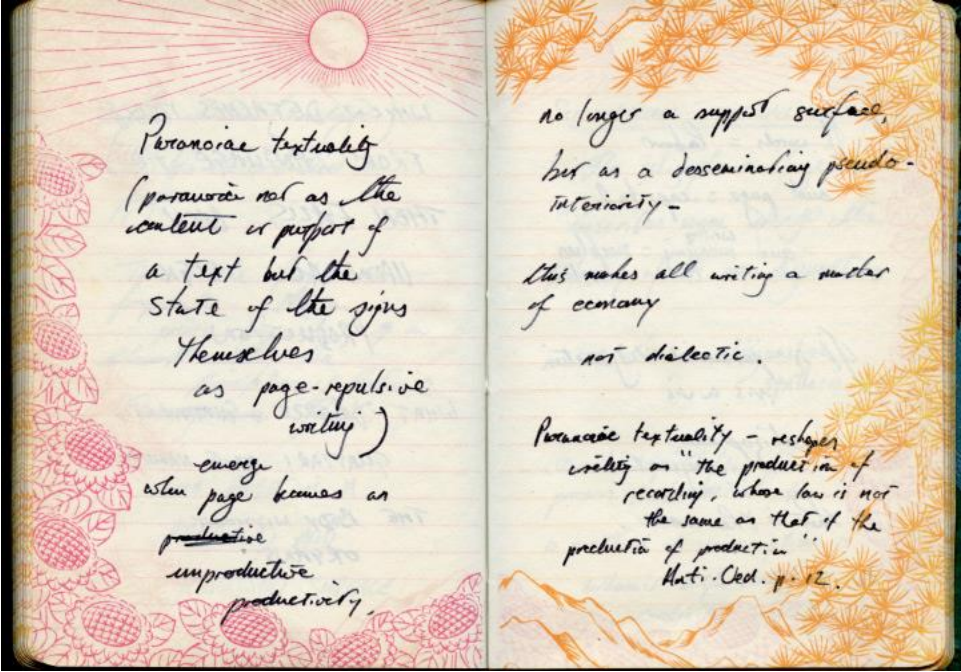 Paranoiac textuality
(paranoia not as the
content or purport of
a text but the
state of the signs
themselves
as page-repulsive
writing)
emerge
when page becomes an
productive
unproductive
productivity,
no longer a support surface,
but as a desseminating pseudo-
interiority -
this makes all writing a matter
of economy
not dialectic.
Paranoiac textuality - reshapes
writing as "the production of
recording, whose law is not
the same as that of the
production of production"
Anti-Oed. p. 12.